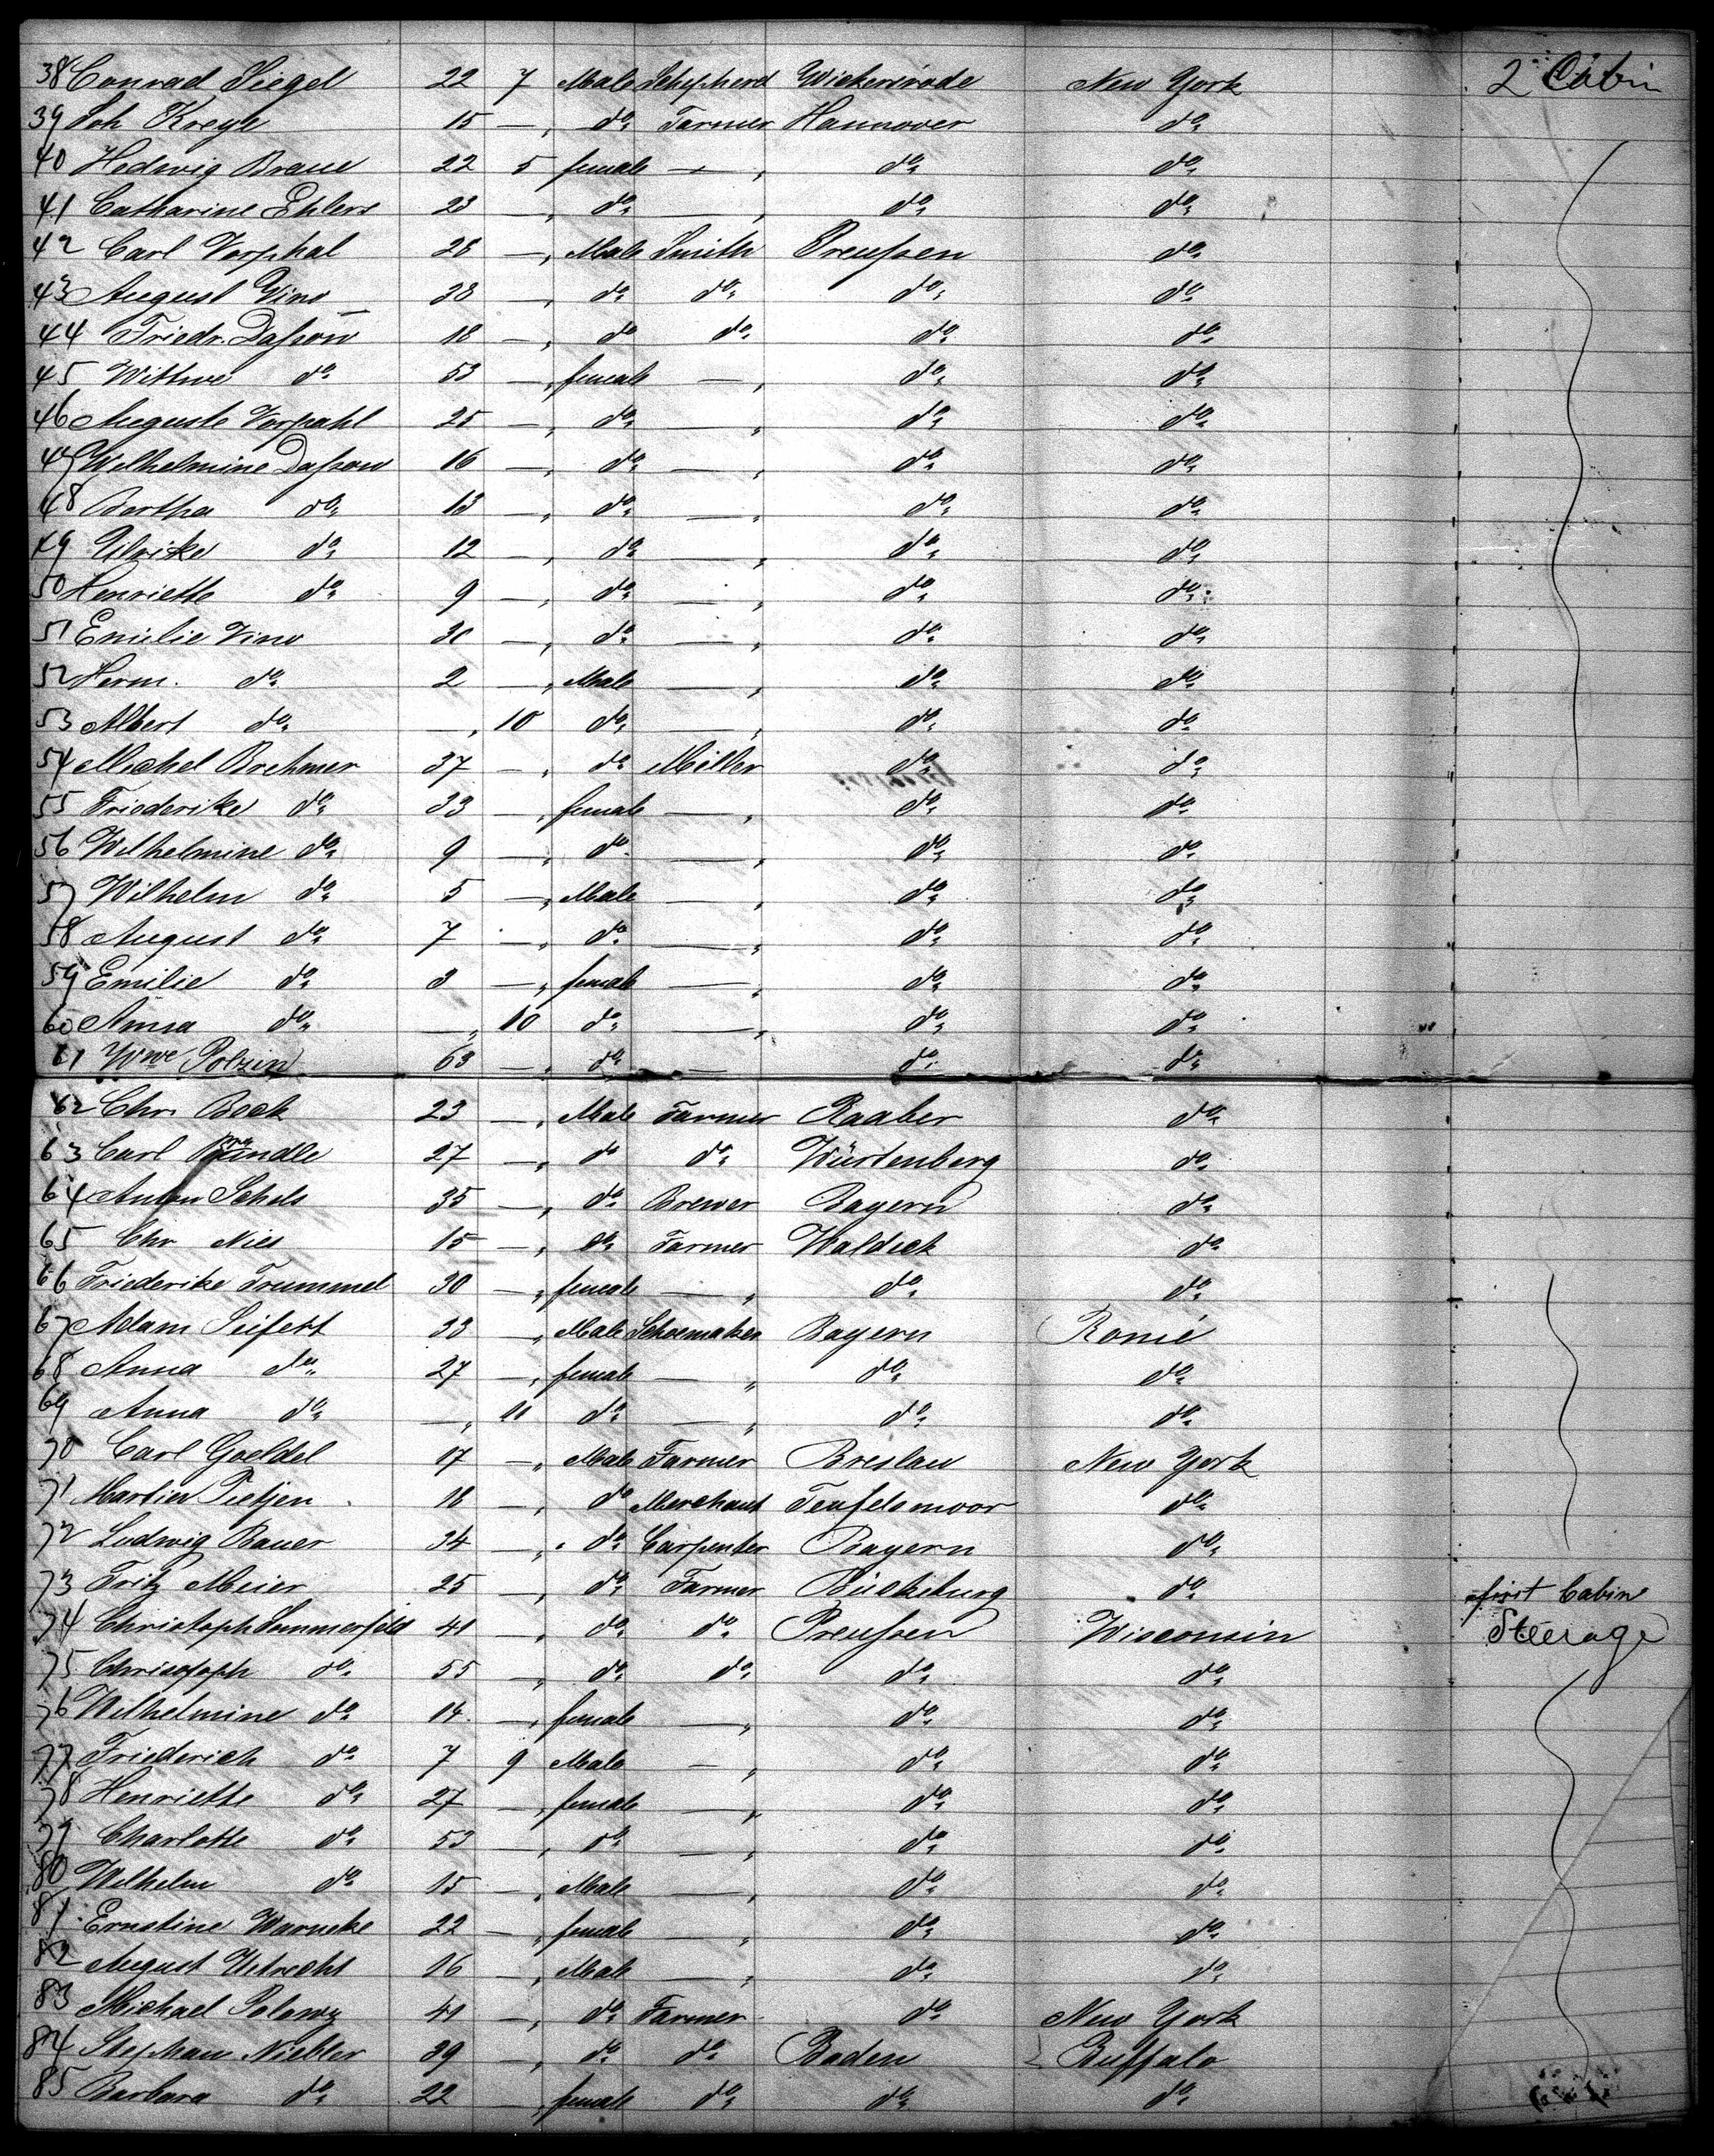 38 Conrad Siegel 22 7 Male Schepherd Wickersrode New York 2 Cabin
39 Joh Kreye 15 — " do Farmer Hannover do
40 Hedwig Braue 22 5 female — " do do
41 Catharine Ehlers 23 — " do — " do do
42 Carl Vorphal 28 — " Male Smith Preußen do
43 August Vino 38 — " do do do do
44 Friedr. Daßow 18 — " do do do do
45 Wittwe do 53 — " female — " do do
46 Auguste Vorpahl 25 — " do — " do do
47 Wilhelmine Daßow 16 — " do — " do do
48 Bertha do 13 — " do — " do do
49 Ulrike do 12 — " do — " do do
50 Henriette do 9 — " do — " do do
51 Emilie Vino 30 — " do — " do do
52 Herm. do 2 — " Male — " do do
53 Albert do — " 10 do — " do do
54 Michel Brehmer 37 — " do Miller do do
55 Friederike do 33 — " female — " do do
56 Wilhelmine do 9 — " do — " do do
57 Wilhelm do 5 — " Male — " do do
58 August do 7 — " do — " do do
59 Emilie do 3 — " female — " do do
60 Anna do — " 10 do — " do do
61 Wwe Polzin 63 — " do — do do
62 Chr. Bock 23 — " Male Farmer Raaber do
63 Carl Brändle 27 — " do do Würtenberg do
64 Anton Schels 35 — " do Brewer Bayern do
65 Chr Nies 15 — " do Farmer Waldeck do
66 Friederike Trummel 30 — " female — " do do
67 Adam Seifert 33 — " Male Schoemaker Bayern Rome
68 Anna do 27 — " female — " do do
69 Anna do — " 11 do — " do do
70 Carl Goeldel 17 — " Male Farmer Breslau New York
71 Martin Tietjen 18 — " do Merchant Teufelsmoor do
72 Ludwig Bauer 34 — " do Carpenter Bayern do
73 Fritz Meier 25 — " do Farmer Bückeburg do first Cabin
74 Christoph Sommerfeld 41 — " do do Preußen Wisconsin Steerage
75 Christoph do 55 — " do do do do
76 Wilhelmine do 14 — " female — " do do
77 Friederich do 7 9 Male — " do do
78 Henriette do 27 — " female — " do do
79 Charlotte do 53 — " do — " do do
80 Wilhelm do 15 — " Male — " do do
81 Ernstine Warneke 22 — " female — " do do
82 August Utrecht 16 — " Male — " do do
83 Michael Polewz 41 — " do Farmer do New York
84 Stephan Niebler 39 — " do do Baden Buffalo
85 Barbara do 22 — " female do do do